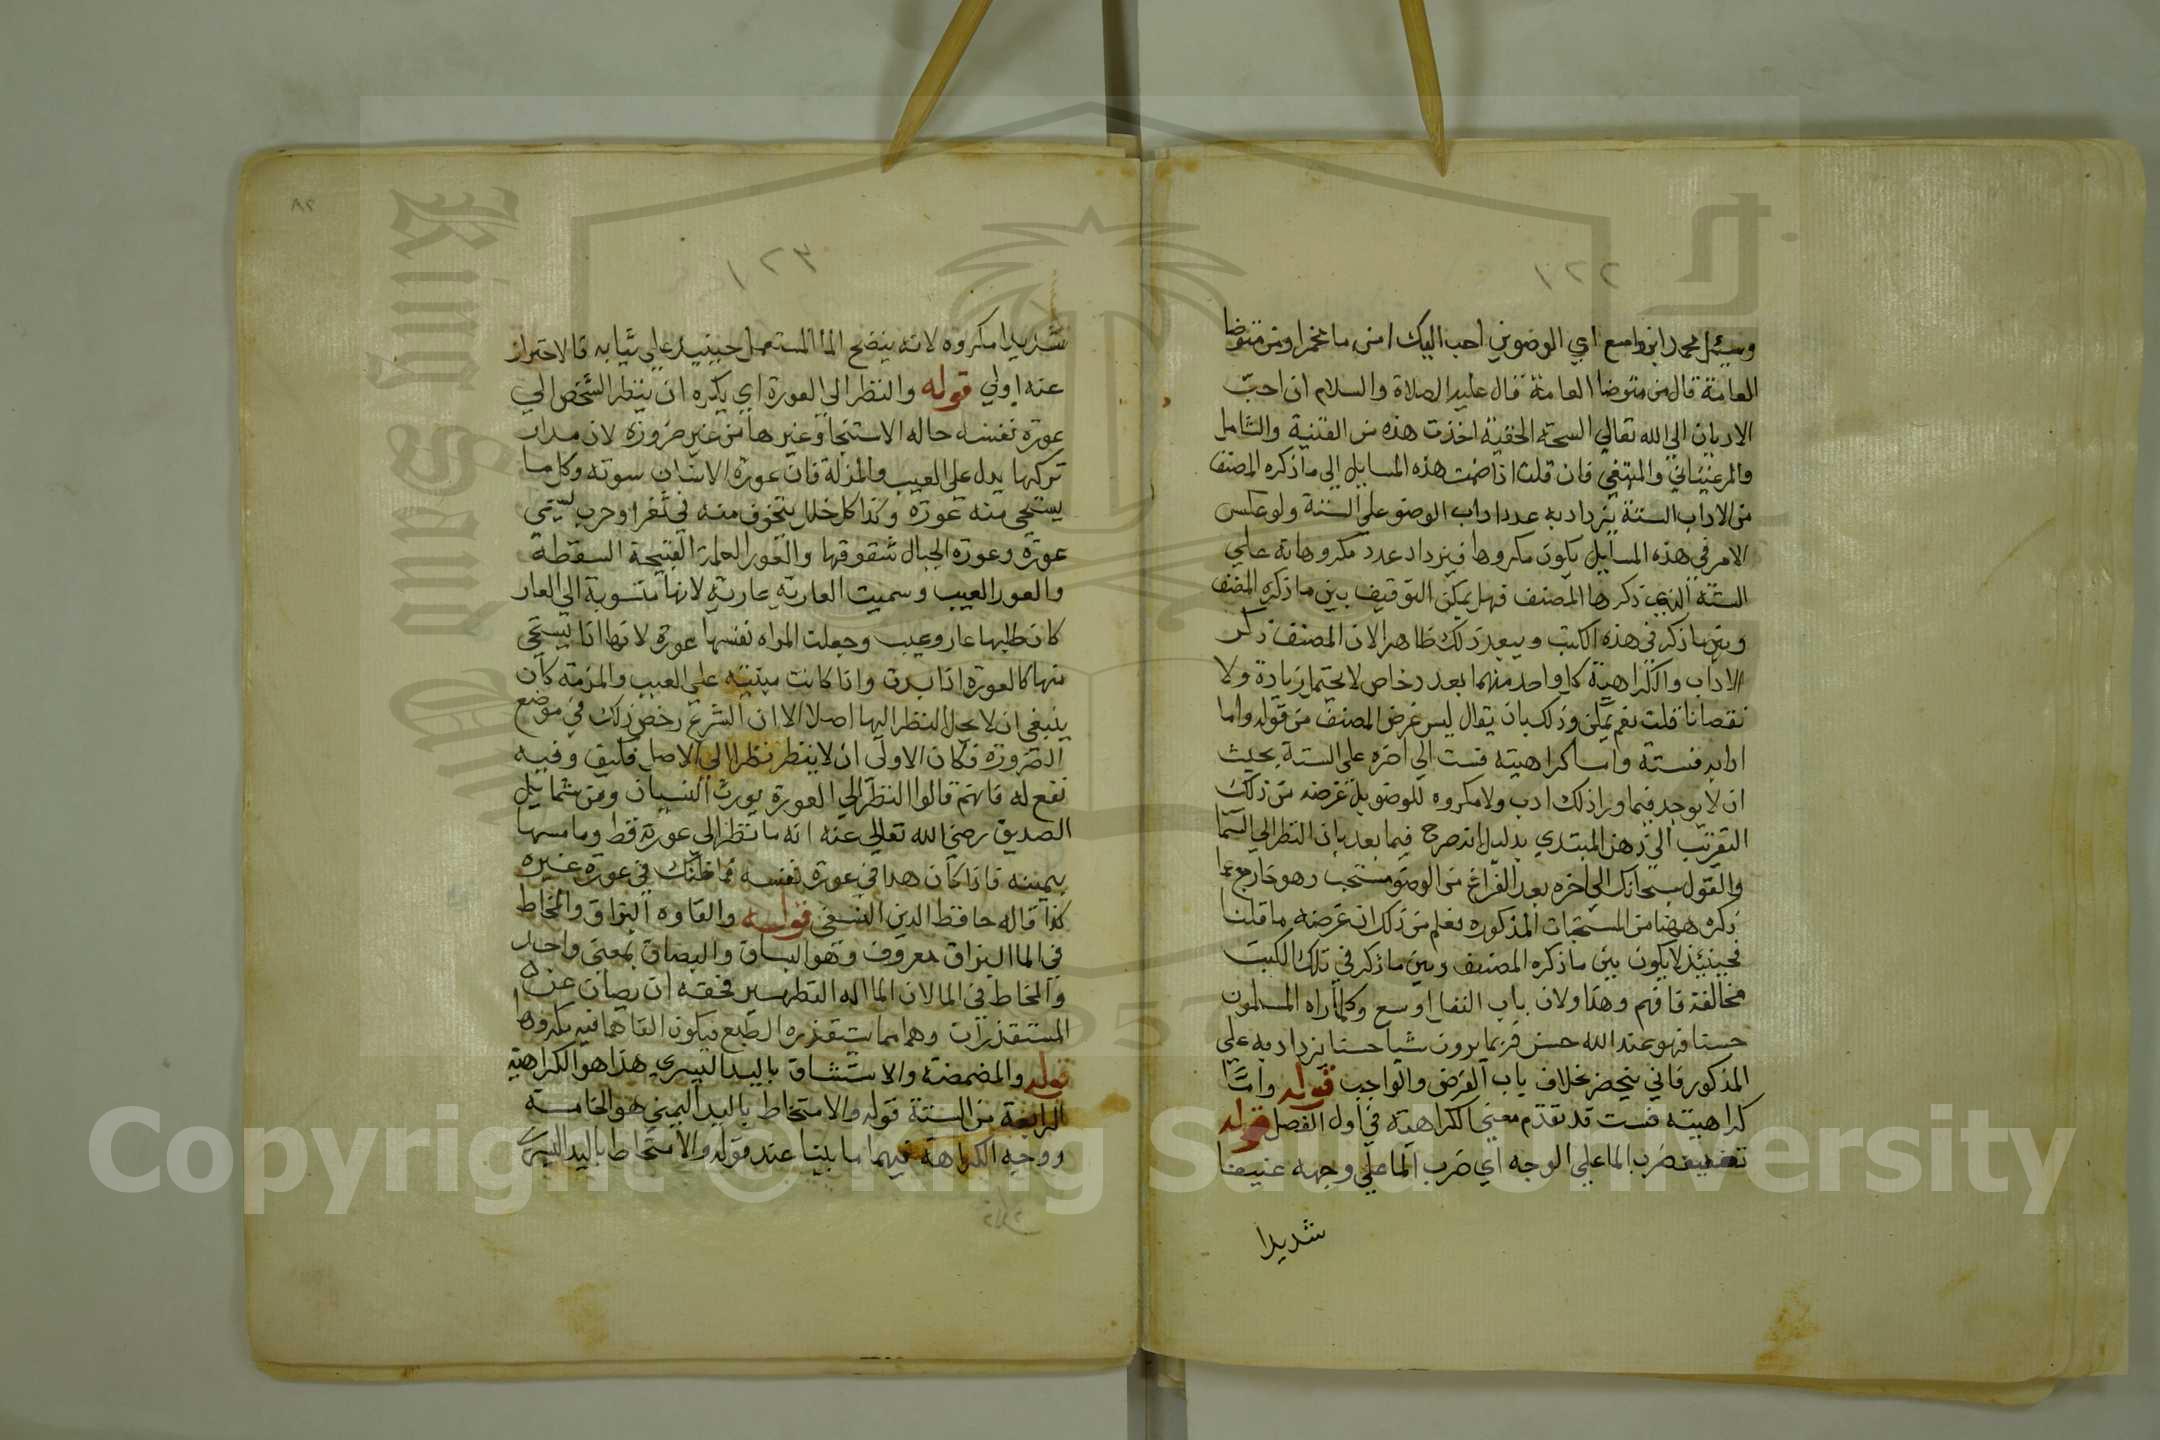 ١٢٢
وسئل محمد ابن واسع اي الوضوين احب اليك امن ما مخمر او من متوضا
العامة قال من متوضا العامة قال عليه الصلاة والسلام ان احبّ
الاديان الى الله تعالي السمحة الحنفية اخذت هذه من القنية والشامل
والمرغيناني والمبتغي فان قلت اذا ضمت هذه المسايل الى ما ذكره المصنف
من الاداب الستة يزداد به عدد اداب الوضو علي الستة ولو عكس
الامر في هذه المسايل يكون مكروها فيزداد عدد مكروهاته علي
الستة الذي ذكرها المصنف فهل يمكن التوفيق بين ما ذكره المصنف
وبين ما ذكر في هذه الكتب ويبعد ذلك ظاهرا لان المصنف ذكر
الاداب والكراهية كل واحد منهما بعدد خاص لا يحتمل زيادة ولا
نقصانا قلت نعم يمكن وذلك بان يقال ليس غرض المصنف من قوله واما
ادابه فستة واما كراهيته فست الي اخره على الستة بحيث
ان لا يوجد فيما ورا ذلك ادب ولا مكروه للوضو بل غرضه من ذلك
التقريب الي ذهن المبتدي بدليل انه صرح فيما بعد بان النظر الي السما
والقول سبحانك الي اخره بعد الفراغ من الوضو مستحب وهو خارج عما
ذكره ههنا من المستحبات المذكوره فعلم من ذلك ان غرضه ما قلنا
فحينيذ لا يكون بين ما ذكره المصنف وبين ما ذكر في تلك الكتب
مخالفة فافهم وهذا ولان باب النفل اوسع وكلما راه المسلمون
حسنا فهو عند الله حسن فربما يرون شيا حسنا يزداد به علي
المذكور فاني ينحصر بخلاف باب الفرض والواجب قوله وامّا
كراهيته فست قد تقدم معني الكراهية في اول الفصل قوله
تعنيف ضرب الما علي الوجه اي ضرب الما علي وجهه عنيفا
شديدا
٢٨
١٢٣
شديدا مكروه لانه ينضح الما المستعمل حينيذ علي ثيابه فالاحتراز
عنه اولي قوله والنظر الي العورة اي يكره ان ينظر الشخص الي
عورة نفسه حاله الاستنجا وغيرها من غير ضرورة لان مدار
تركبها يدل على العيب والمذلة فان عورة الانسان سوته وكل ما
يستحي منه عورة وكذا كل خلل يتخوف منه في ثغر او حرب يسمي
عورة وعورة الجبال شقوقها والعورا الكلمة القبيحة السقطة
والعور العيب وسميت العارية عارية لانها منسوبة الي العار
كان طلبها عار وعيب وجعلت المراه نفسها عورة لانها اذا تستحي
منها كالعورة اذا بدت واذا كانت مبنية علي العيب والمذمة كان
ينبغي ان لا يحل النظر اليها اصلا الا ان الشرع رخص ذلك في موضع
الضرورة فكان الاولي ان لا ينظر نظرا الي الاصل فكيف وفيه
نفع له فانهم قالوا النظر الي العورة يورث النسيان ومن شمايل
الصديق رضي الله تعالي عنه انه ما نظر الي عورة قط وما مسها
بيمينه فاذا كان هذا في عورة نفسه فما ظنك في عورة غيره
كذا قاله حافظ الدين النسفي قوله والقاوه البزاق والمخاط
في الما البزاق معروف وهو البساق والبصاق بمعني واحد
والمخاط في الما لان الما اله التطهير فحقه ان يصان عن
المستقذرات وهما مما يستقذره الطبع فيكون القاهما فيه مكروها
قوله والمضمضة والاستنشاق باليد اليسري هذا هو الكراهية
الرابعة من الستة قوله والامتخاط باليد اليمني هو الخامسة
ووجه الكراهة فيهما ما بينا عند قوله والامتخاط باليد اليسري
Copyright © King Saud University
King Saud University
1957